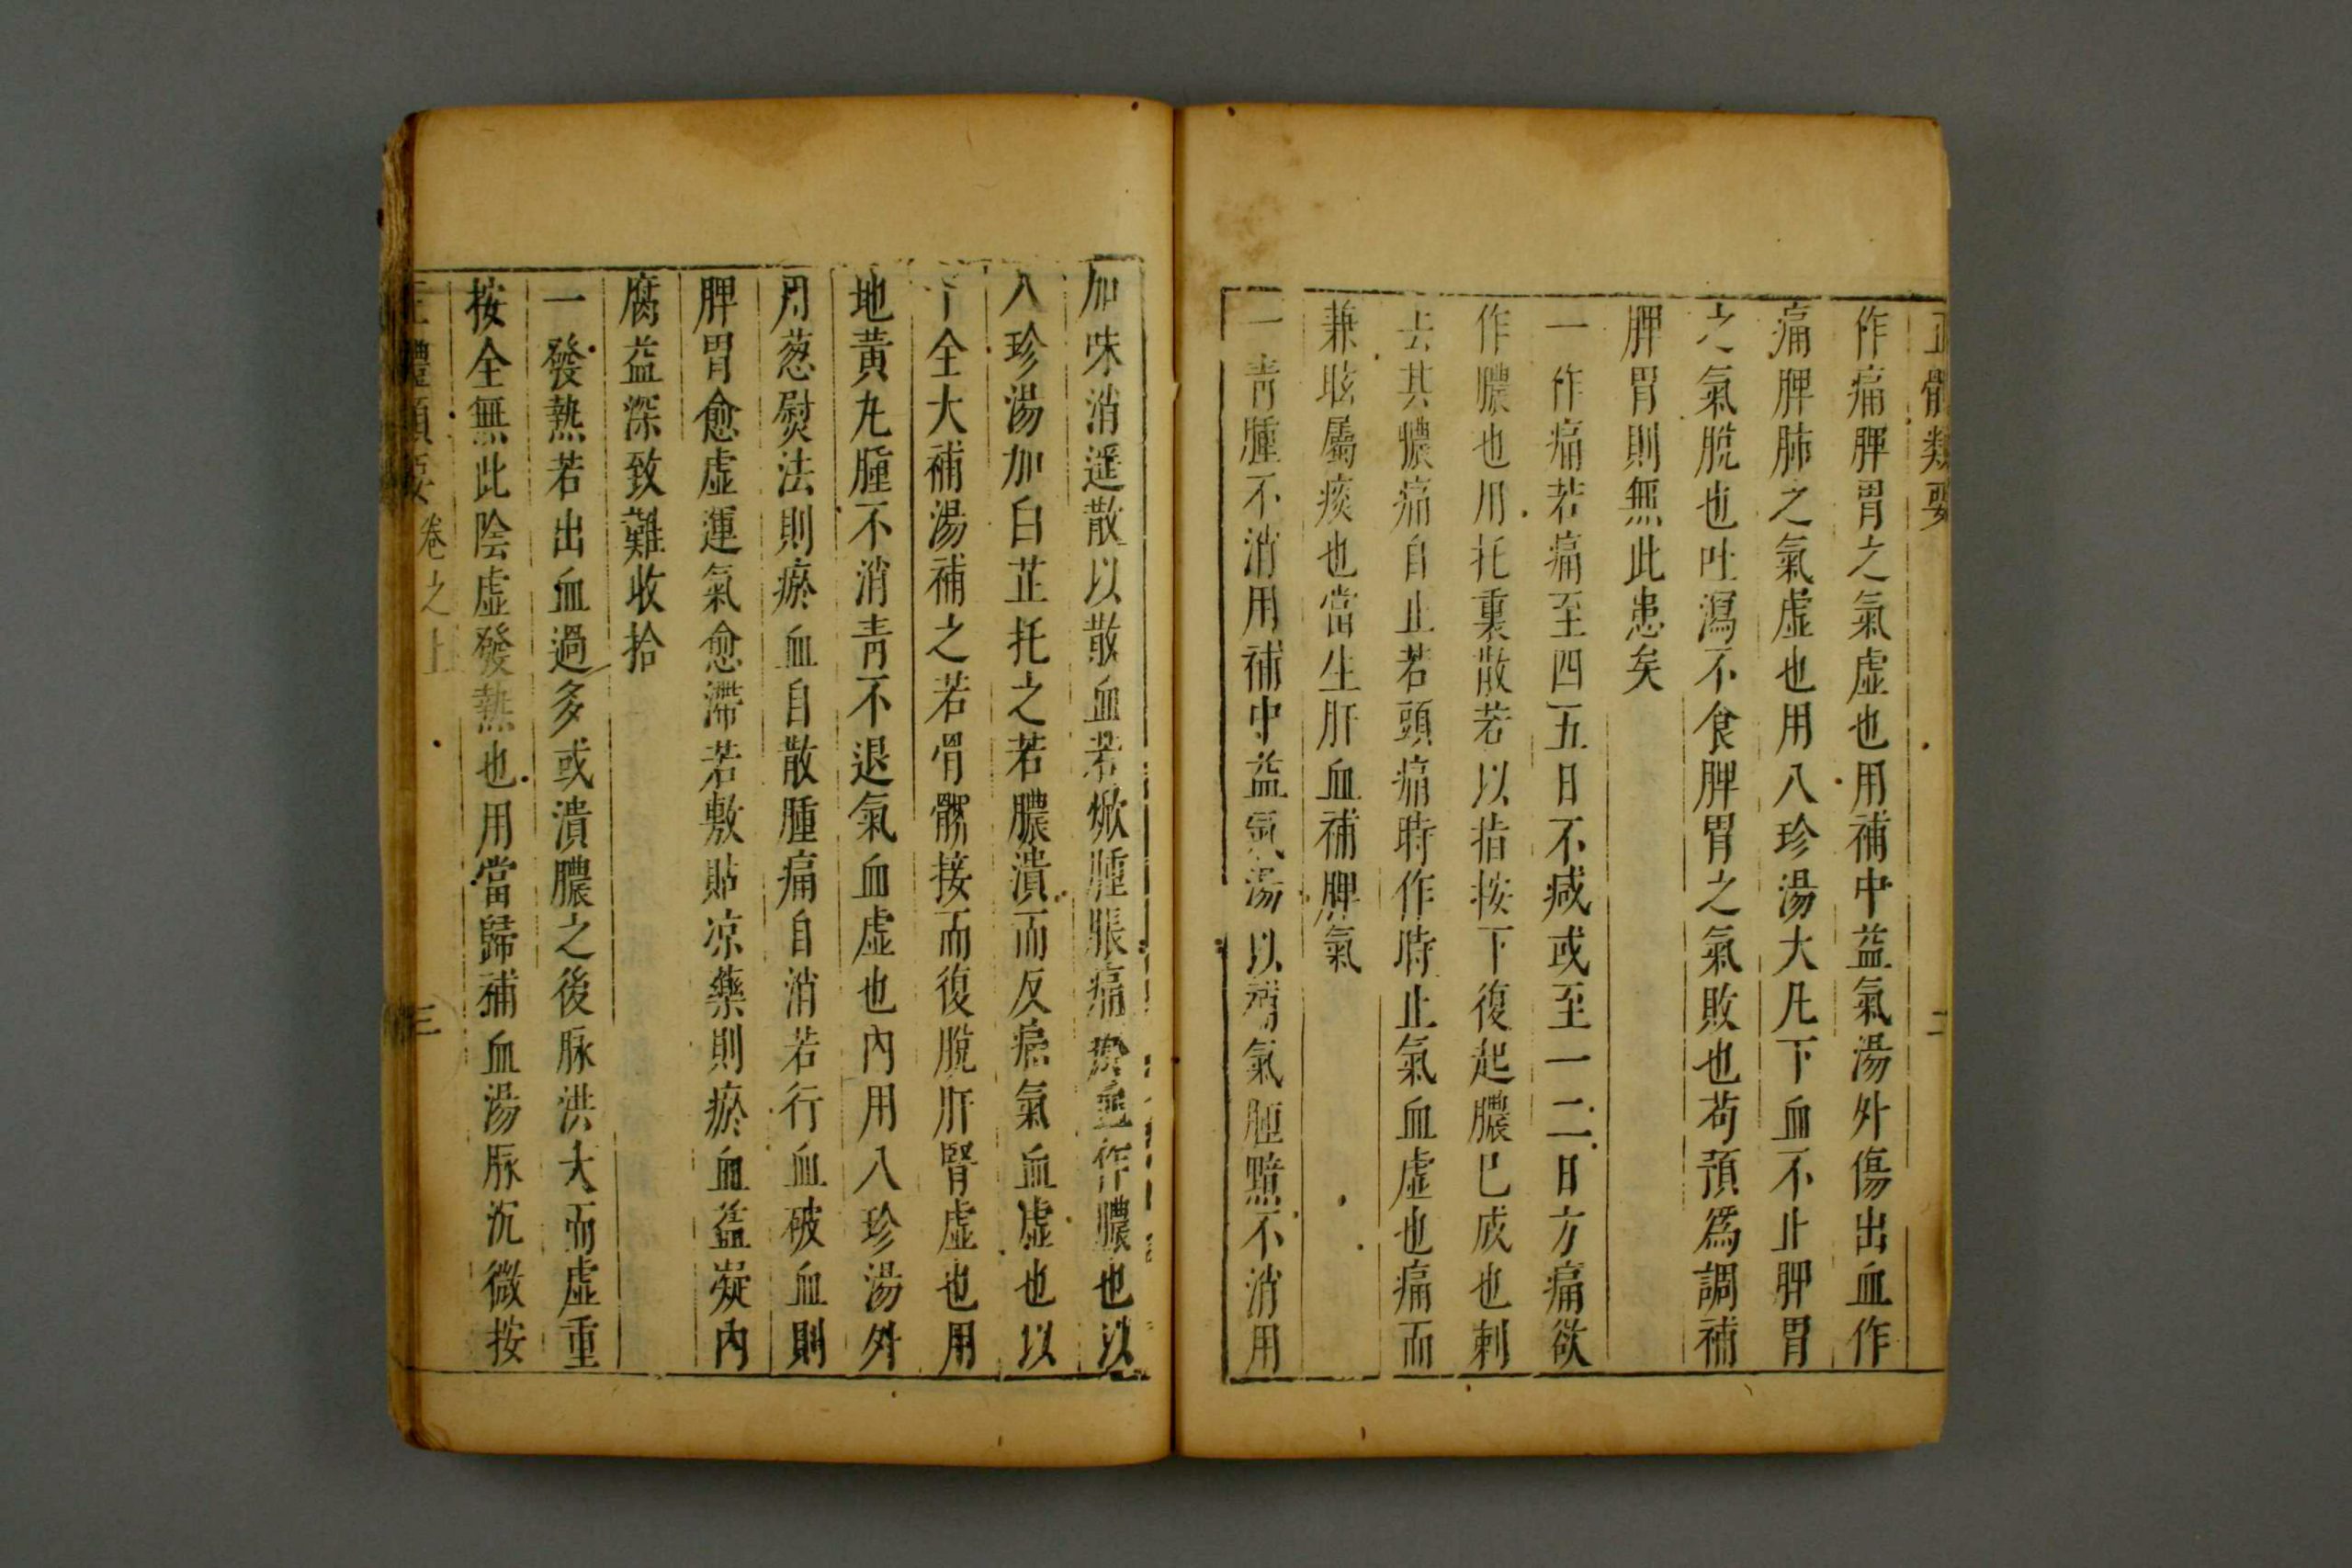 正體類要 二
作痛脾胃之氣虛也用補中益氣湯外傷出血作
痛脾肺之氣虛也用八珍湯大凡下血不止脾胃
之氣脫也吐瀉不食脾胃之氣敗也苟預爲調補
脾胃則無此患矣
一作痛若痛至四五日不減或至一二日方痛欲
作膿也用托裏散若以指按下復起膿已成也刺
去其膿痛自止若頭痛時作時止氣血虛也痛而
兼眩屬痰也當生肝血補脾氣
一靑腫不消用補中益氣湯以補氣腫黯不消用
加味消遥散以散血若焮腫脹痛瘀血作膿也以
八珍湯加白芷托之若膿潰而反痛氣血虛也以
十全大補湯補之若骨髎接而復脫肝腎虛也用
地黃丸腫不消靑不退氣血虛也內用八珍湯外
用葱熨法則瘀血自散腫痛自消若行血破血則
脾胃愈虛運氣愈滯若敷貼凉藥則瘀血益凝內
腐益深致難收拾
一發熱若出血過多或潰膿之後脉洪大而虛重
按全無此陰虛發熱也用當歸補血湯脉沉微按
正體類要 卷之上 三